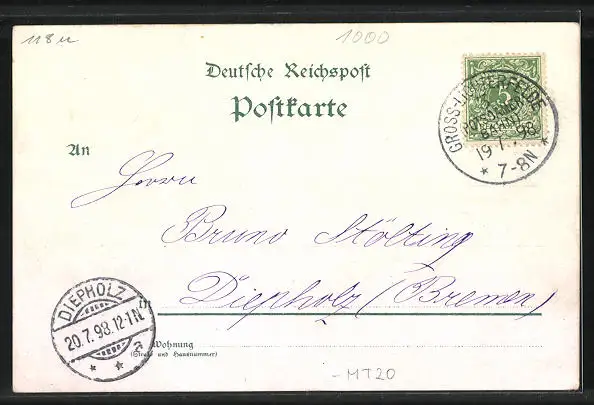 118 u
1000
Deutsche Reichspost
Postkarte
An
Herrn
Bruno Stölting
in Diepholz (Bremen)
Wohnung
(Straße und Hausnummer)
GROSS-LICHTERFELDE
POTSDAMER
BAHN
19 7. 98
* 7-8N *
5
DIEPHOLZ
20.7.98.12-1N.
* * a
-MT20